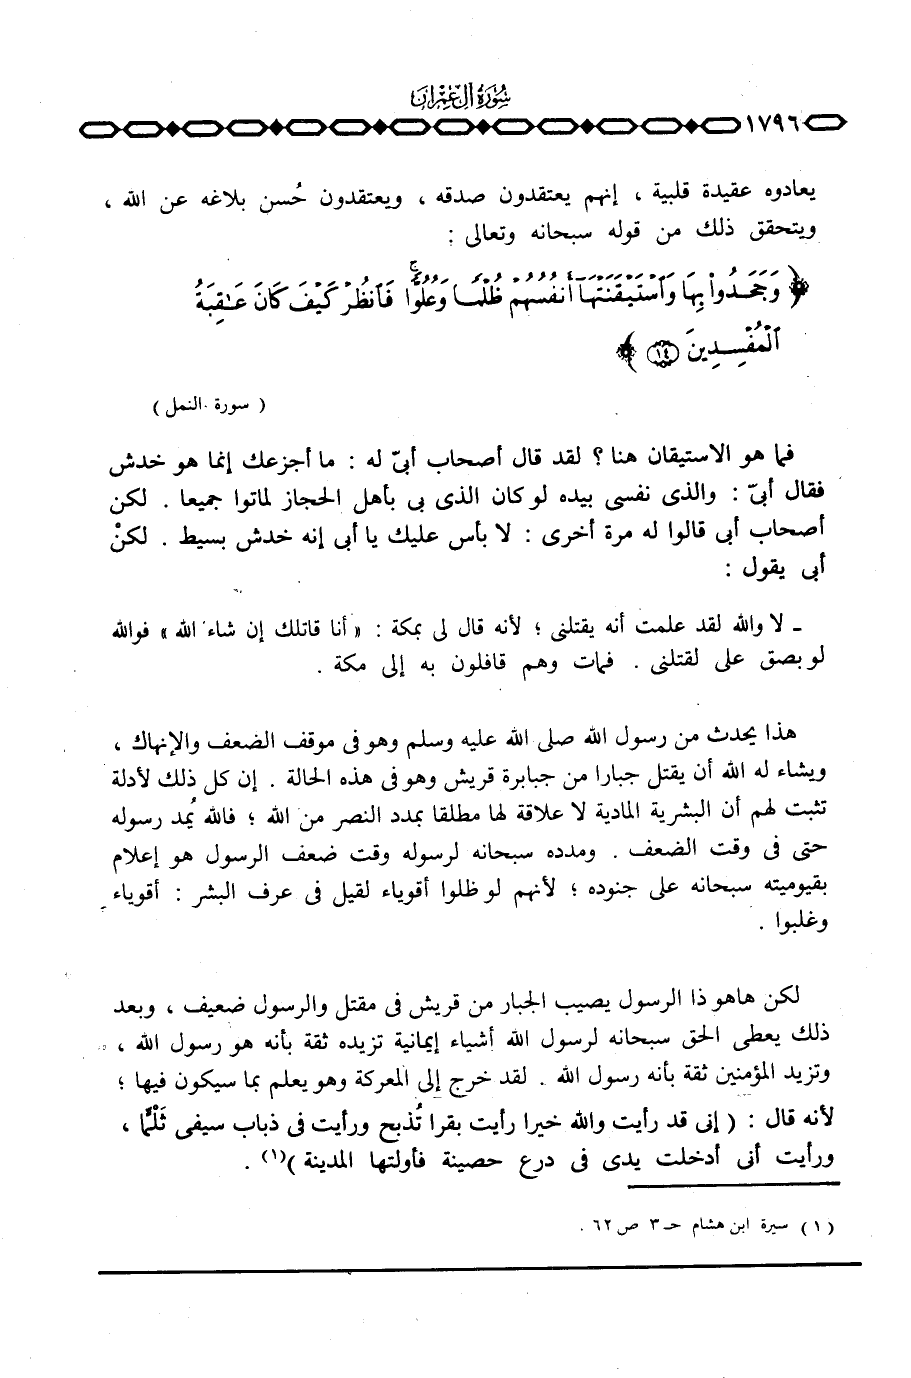 سُورَةُ آلِ عِمْرَانَ
١٧٩٦
يعادوه عقيدة قلبية ، إنهم يعتقدون صدقه ، ويعتقدون حُسن بلاغه عن الله ،
ويتحقق ذلك من قوله سبحانه وتعالى :
﴿ وَجَحَدُوا۟ بِهَا وَٱسْتَيْقَنَتْهَآ أَنفُسُهُمْ ظُلْمًا وَعُلُوًّا ۚ فَٱنظُرْ كَيْفَ كَانَ عَـٰقِبَةُ
ٱلْمُفْسِدِينَ ١٤ ﴾
( سورة النمل )
فما هو الاستيقان هنا ؟ لقد قال أصحاب أبىّ له : ما أجزعك إنما هو خدش
فقال أبىّ : والذى نفسى بيده لو كان الذى بى بأهل الحجاز لماتوا جميعا . لكن
أصحاب أبى قالوا له مرة أخرى : لا بأس عليك يا أبى إنه خدش بسيط . لكنْ
أبى يقول :
ـ لا والله لقد علمت أنه يقتلنى ؛ لأنه قال لى بمكة : « أنا قاتلك إن شاء الله » فوالله
لو بصق على لقتلنى . فمات وهم قافلون به إلى مكة .
هذا يحدث من رسول الله صلى الله عليه وسلم وهو فى موقف الضعف والإنهاك ،
ويشاء له الله أن يقتل جبارا من جبابرة قريش وهو فى هذه الحالة . إن كل ذلك لأدلة
تثبت لهم أن البشرية المادية لا علاقة لها مطلقا بمدد النصر من الله ؛ فالله يُمد رسوله
حتى فى وقت الضعف . ومدده سبحانه لرسوله وقت ضعف الرسول هو إعلام
بقيوميته سبحانه على جنوده ؛ لأنهم لو ظلوا أقوياء لقيل فى عرف البشر : أقوياء
وغلبوا .
لكن هاهو ذا الرسول يصيب الجبار من قريش فى مقتل والرسول ضعيف ، وبعد
ذلك يعطى الحق سبحانه لرسول الله أشياء إيمانية تزيده ثقة بأنه هو رسول الله ،
وتزيد المؤمنين ثقة بأنه رسول الله . لقد خرج إلى المعركة وهو يعلم بما سيكون فيها ؛
لأنه قال : ( إنى قد رأيت والله خيرا رأيت بقرا تُذبح ورأيت فى ذباب سيفى ثَلْمًا ،
ورأيت أنى أدخلت يدى فى درع حصينة فأولتها المدينة )(١) .
( ١ ) سيرة ابن هشام حـ ٣ ص ٦٢ .